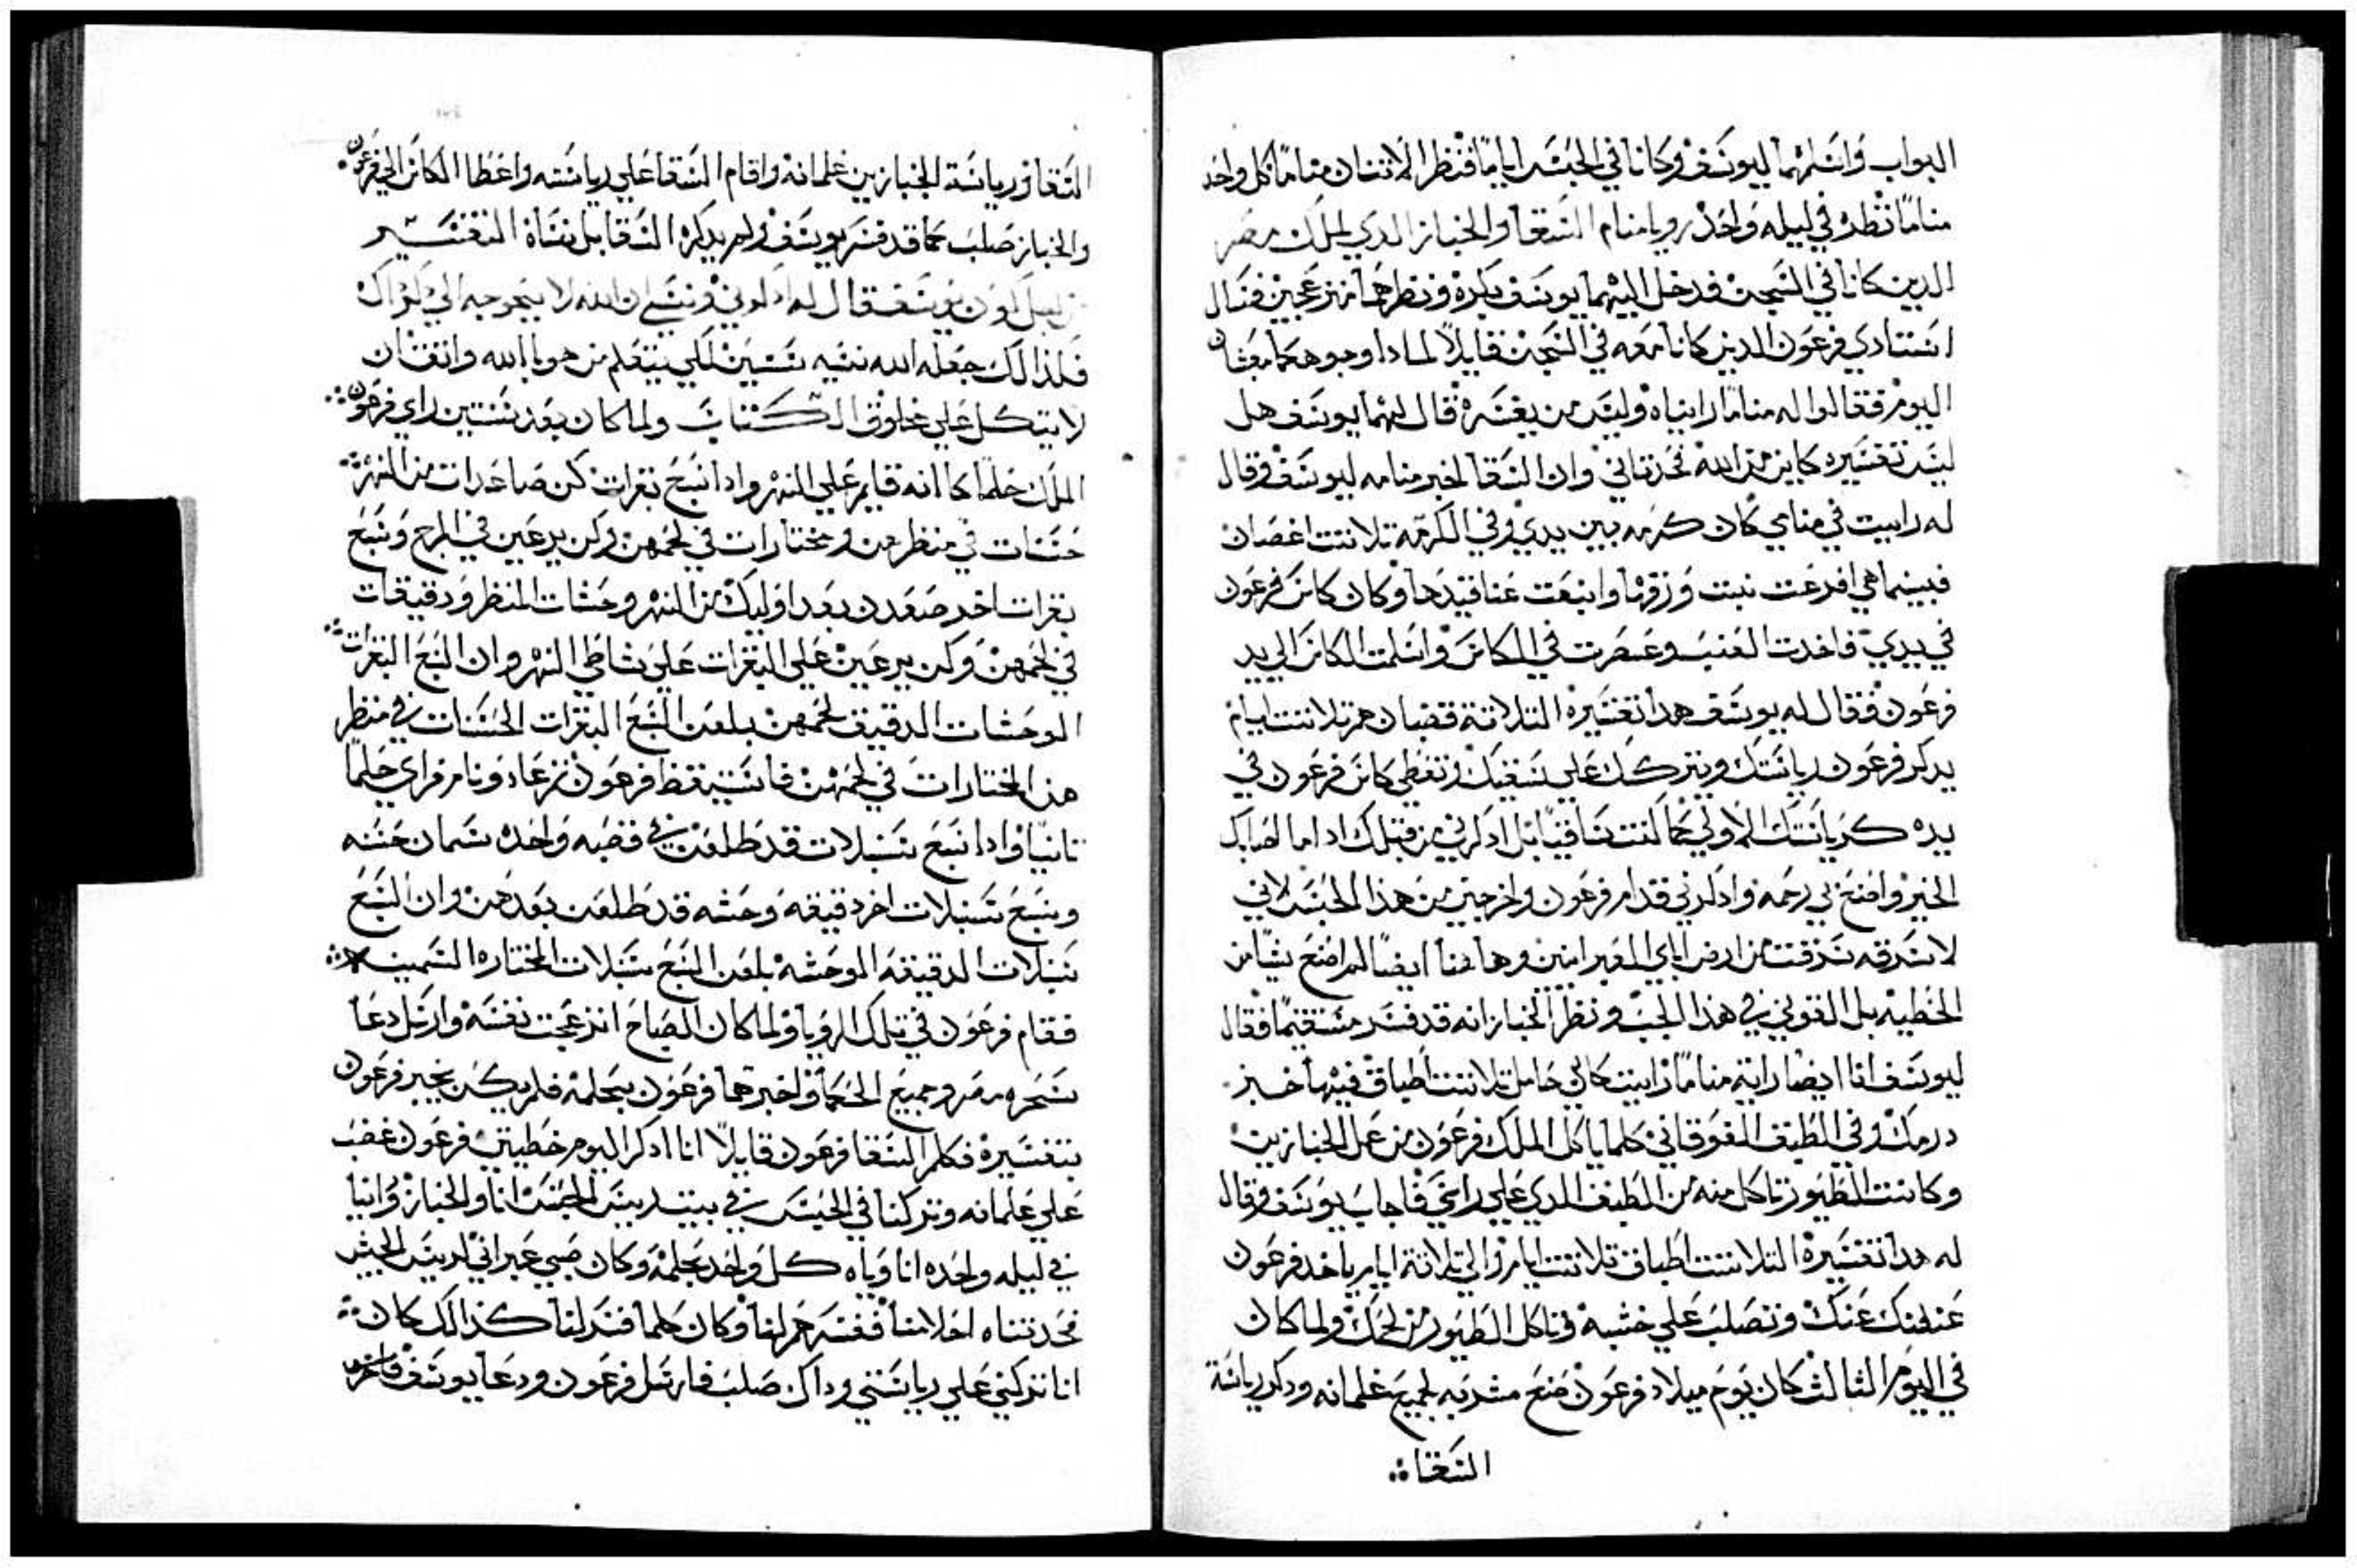 البواب واسلمهما ليوسف وكانا في الحبس اياما فنظر الاتنان مناما كل واحد
مناما نظره في ليله واحده رويا منام السقا والخباز الدي لملك مصر
الدين كانا في السجن فدخل اليهما يوسف بكره ونظرهما منزعجين فسال
استادي فرعون الدين كانا معه في السجن قايلا لمادا وجوهكما معبسان
اليوم فقالوا له مناما رايناه وليس من يفسره قال لهما يوسف هل
ليس تفسيره كاين من الله تحدتاني وان السقا اخبر منامه ليوسف وقال
له راييت في منامي كان كرمه بين يدي وفي الكرمه تلاتت اغصان
فبينما هي افرعت نبتت ورقها وانبعت عناقيدها وكان كاس فرعون
في يدي فاخدت العنب وعصرت في الكاس واسلمت الكاس الي يد
فرعون فقال له يوسف هدا تفسيره التلاتة قضبان هم تلاتت ايام
يدكر فرعون رياستك ويتركك علي سقيك وتعطي كاس فرعون في
يده كرياستك الاولي كما كنت ساقيا بل ادكرني من قبلك ادا ما اصابك
الخير واصنع بي رحمه وادكرني قدام فرعون واخرجني من هدا الحبس لاني
لاسرقه سرقت من ارض اباي العبرانيين وهاهنا ايضا لم اصنع شيا من
الخطيه بل القوني في هدا الجب ونظر الخباز انه قد فسر مستقيما فقال
ليوسف انا ايضا رايت مناما راييت كاني حامل تلاتت اطباق فيها خبز
درمك وفي الطبق الفوقاني كلما ياكل الملك فرعون من عمل الخبازين
وكانت الطيور تاكل منه من الطبق الدي علي راسي فاجاب يوسف وقال
له هدا تفسيره التلاتت اطباق تلاتت ايام والي تلاتة ايام ياخد فرعون
عنقك عنك وتصلب علي خشبه وتاكل الطيور من لحمك ولما كان
في اليوم الثالث كان يوم ميلاد فرعون صنع مشربه لجميع غلمانه ودكر رياسة
السقا
السقا ورياسة الخباز بين غلمانه واقام السقا علي رياسته واعطا الكاس الي فرعون
والخباز صلب كما قد فسر يوسف ولم يدكره السقا بل نساه التفسير
يوسف قال له ادكرني ونسي ان الله لا
فلدالك جعله الله نسيه سنتين لكي يتعلم من هو بالله واتقان
لا يتكل علي مخلوق الكتاب ولما كان بعد سنتين راي فرعون
الملك حلما كانه قايم علي النهر وادا سبع بقرات كن صاعدات من النهر
حسنات في منظرهن ومختارات في لحمهن وكن يرعين في المرج وسبع
بقرات اخر صعدن بعد اوليك من النهر وحشات المنظر ودقيقات
في لحمهن وكن يرعين علي البقرات علي شاطي النهر وان السبع البقرات
الوحشات الدقيق لحمهن بلعن السبع البقرات الحسنات في منظر
هن المختارات في لحمهن فاستيقظ فرعون تم عاد ونام فراي حلما
تانيا وادا سبع سنبلات قد طلعن في قصبه واحده سمان حسنه
وسبع سنبلات اخر دقيقه وحشه قد طلعن بعدهن وان السبع
سنبلات الدقيقه الموحشه بلعن السبع سنبلات المختاره السمينه
فقام فرعون في تلك الرويا ولما كان الصباح انزعجت نفسه وارسل دعا
سحره مصر وجميع الحكما واخبرها فرعون بحلمه فلم يكن يخبر فرعون
بتفسيره فكلم السقا فرعون قايلا انا ادكر اليوم خطيتي فرعون غضب
علي غلمانه وتركنا في الحبس في بيت رييس الحبس انا والخباز وراينا
في ليله واحده انا وياه كل واحد بحلمه وكان صبي عبراني لرييس الجيش
فحدتناه احلامنا ففسرهم لنا وكان كلما فسر لنا كدالك كان
انا تركني علي رياستي وداك صلب فارسل فرعون ودعا يوسف فاخرج